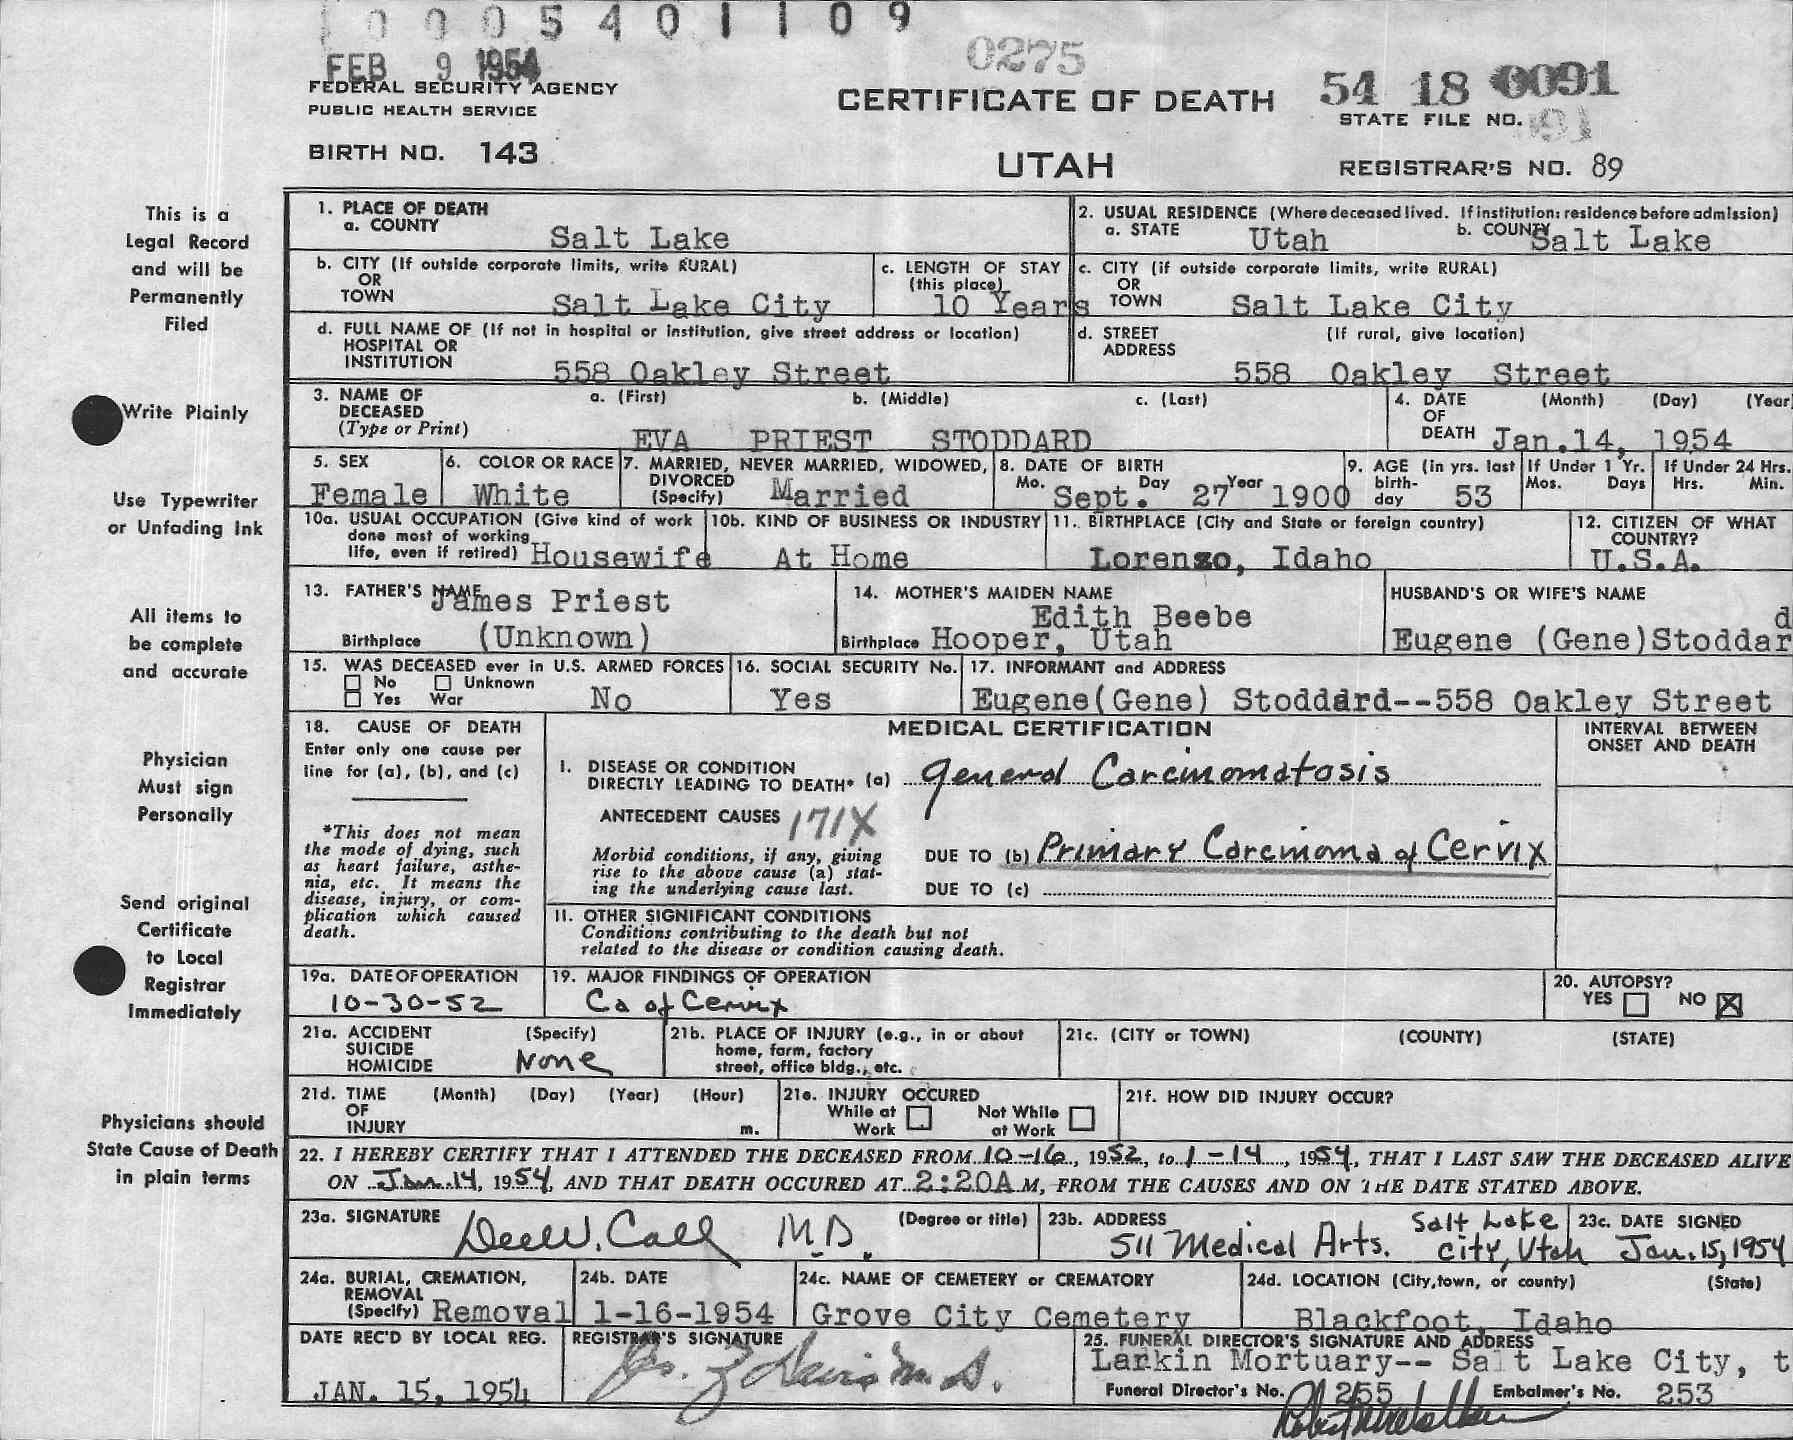 0 0 0 5 4 0 1 1 0 9
FEB 9 1954
0275
FEDERAL SECURITY AGENCY
PUBLIC HEALTH SERVICE
CERTIFICATE OF DEATH
54 18 0091
STATE FILE NO. 91
BIRTH NO. 143
UTAH
REGISTRAR'S NO. 89
This is a
Legal Record
and will be
Permanently
Filed
Write Plainly
Use Typewriter
or Unfading Ink
All items to
be complete
and accurate
Physician
Must sign
Personally
Send original
Certificate
to Local
Registrar
Immediately
Physicians should
State Cause of Death
in plain terms
1. PLACE OF DEATH
a. COUNTY Salt Lake
2. USUAL RESIDENCE (Where deceased lived. If institution: residence before admission)
a. STATE Utah b. COUNTY Salt Lake
b. CITY (If outside corporate limits, write RURAL)
OR
TOWN Salt Lake City
c. LENGTH OF STAY
(this place)
10 Years
c. CITY (if outside corporate limits, write RURAL)
OR
TOWN Salt Lake City
d. FULL NAME OF (If not in hospital or institution, give street address or location)
HOSPITAL OR
INSTITUTION
558 Oakley Street
d. STREET (If rural, give location)
ADDRESS
558 Oakley Street
3. NAME OF a. (First) b. (Middle) c. (Last)
DECEASED
(Type or Print)
EVA PRIEST STODDARD
4. DATE (Month) (Day) (Year
OF
DEATH Jan.14, 1954
5. SEX
Female
6. COLOR OR RACE
White
7. MARRIED, NEVER MARRIED, WIDOWED,
DIVORCED
(Specify) Married
8. DATE OF BIRTH
Mo. Day Year
Sept. 27 1900
9. AGE (in yrs. last
birth-
day 53
If Under 1 Yr.
Mos. Days
If Under 24 Hrs.
Hrs. Min.
10a. USUAL OCCUPATION (Give kind of work
done most of working
life, even if retired) Housewife
10b. KIND OF BUSINESS OR INDUSTRY
At Home
11. BIRTHPLACE (City and State or foreign country)
Lorenzo, Idaho
12. CITIZEN OF WHAT
COUNTRY?
U.S.A.
13. FATHER'S NAME James Priest
Birthplace (Unknown)
14. MOTHER'S MAIDEN NAME
Edith Beebe
Birthplace Hooper, Utah
HUSBAND'S OR WIFE'S NAME
d
Eugene (Gene)Stoddar
15. WAS DECEASED ever in U.S. ARMED FORCES
No Unknown
Yes War No
16. SOCIAL SECURITY No.
Yes
17. INFORMANT and ADDRESS
Eugene(Gene) Stoddard--558 Oakley Street
18. CAUSE OF DEATH
Enter only one cause per
line for (a), (b), and (c)
*This does not mean
the mode of dying, such
as heart failure, asthe-
nia, etc. It means the
disease, injury, or com-
plication which caused
death.
MEDICAL CERTIFICATION
INTERVAL BETWEEN
ONSET AND DEATH
I. DISEASE OR CONDITION
DIRECTLY LEADING TO DEATH* (a) General Carcinomatosis
ANTECEDENT CAUSES 171X
Morbid conditions, if any, giving
rise to the above cause (a) stat-
ing the underlying cause last.
DUE TO (b) Primary Carcinoma of Cervix
DUE TO (c)
II. OTHER SIGNIFICANT CONDITIONS
Conditions contributing to the death but not
related to the disease or condition causing death.
19a. DATE OF OPERATION
10-30-52
19. MAJOR FINDINGS OF OPERATION
Ca of Cervix
20. AUTOPSY?
YES NO X
21a. ACCIDENT (Specify)
SUICIDE
HOMICIDE None
21b. PLACE OF INJURY (e.g., in or about
home, farm, factory
street, office bldg., etc.
21c. (CITY or TOWN) (COUNTY) (STATE)
21d. TIME (Month) (Day) (Year) (Hour)
OF
INJURY m.
21e. INJURY OCCURED
While at Not While
Work at Work
21f. HOW DID INJURY OCCUR?
22. I HEREBY CERTIFY THAT I ATTENDED THE DECEASED FROM 10-16, 1952, to 1-14, 1954, THAT I LAST SAW THE DECEASED ALIVE
ON Jan. 14, 1954, AND THAT DEATH OCCURED AT 2:20A M, FROM THE CAUSES AND ON THE DATE STATED ABOVE.
23a. SIGNATURE (Degree or title)
Dee W. Call M.D.
23b. ADDRESS
511 Medical Arts. Salt Lake
City, Utah
23c. DATE SIGNED
Jan. 15, 1954
24a. BURIAL, CREMATION,
REMOVAL
(Specify) Removal
24b. DATE
1-16-1954
24c. NAME OF CEMETERY or CREMATORY
Grove City Cemetery
24d. LOCATION (City, town, or county) (State)
Blackfoot, Idaho
DATE REC'D BY LOCAL REG.
JAN. 15, 1954
REGISTRAR'S SIGNATURE
M.D.
25. FUNERAL DIRECTOR'S SIGNATURE AND ADDRESS
Larkin Mortuary-- Salt Lake City, t
Funeral Director's No. 255 Embalmer's No. 253